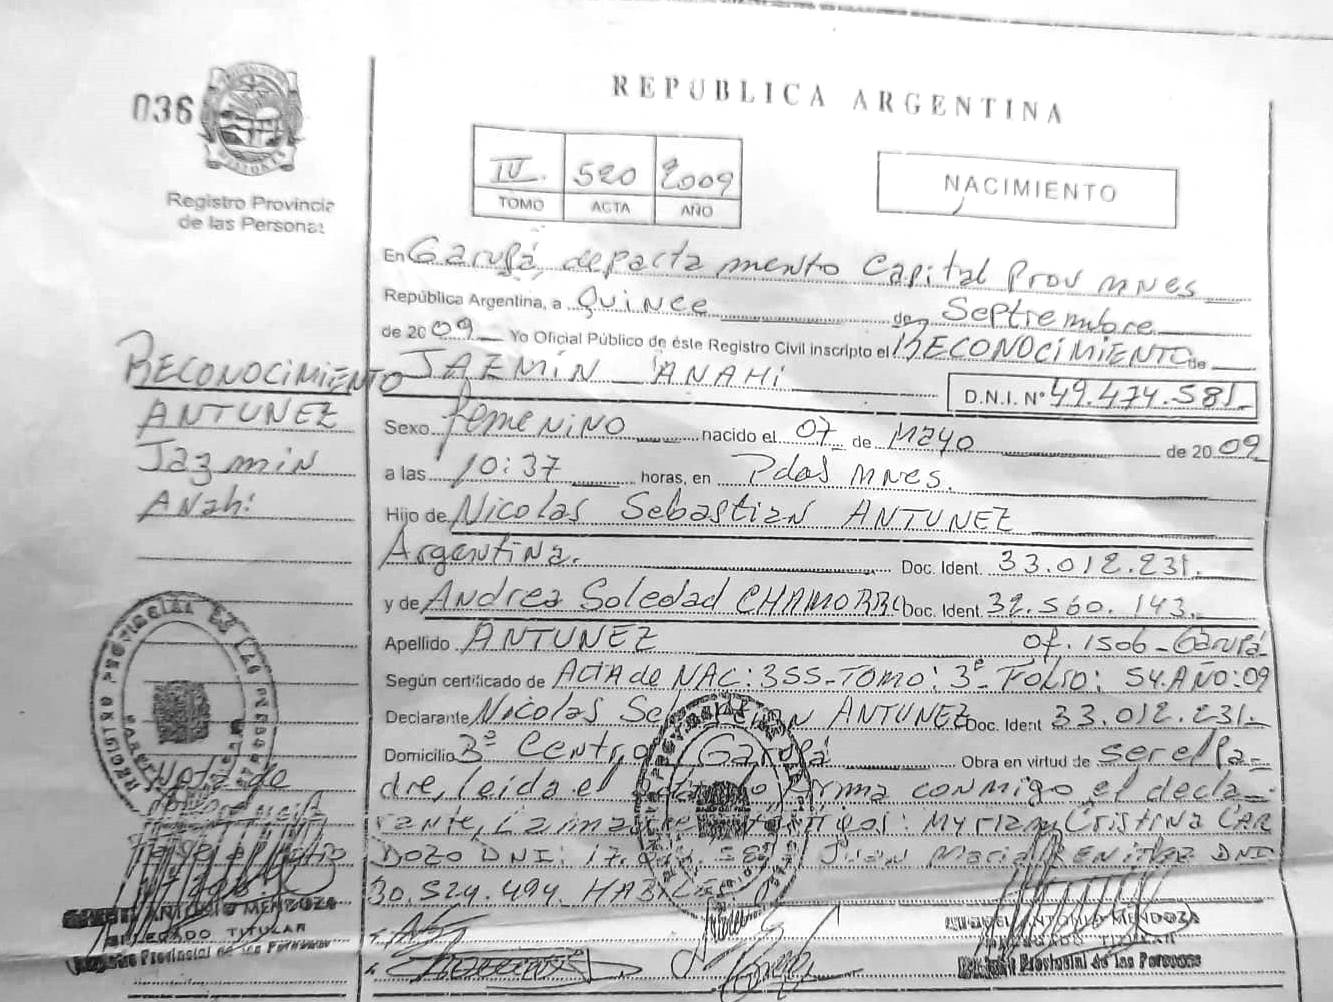 REPUBLICA ARGENTINA
036
Registro Provincia
de las Personas
IV. 520 2009
TOMO ACTA AÑO
NACIMIENTO
En Garupá, departamento Capital Prov MNES
República Argentina, a Quince de Septiembre
de 2009 Yo Oficial Público de éste Registro Civil inscripto el RECONOCIMIENTO de
JAZMÍN ANAHI
D.N.I. Nº 49.474.581.
Sexo femENiNO nacido el 07 de MAYO de 2009
a las 10:37 horas, en Pdas MNES.
Hijo de Nicolas Sebastian ANTUNEZ
Argentina. Doc. Ident. 33.012.231.
y de Andrea Soledad CHAMORRO Doc. Ident. 32.560.143.
Apellido ANTUNEZ Of. 1506 - Garupá
Según certificado de ACTA de NAC: 355 - TOMO: 3º - Folio: 54. AÑO: 09
Declarante Nicolas Sebastian ANTUNEZ Doc. Ident 33.012.231.
Domicilio 3º Centro Garupá Obra en virtud de ser el pa-
dre, leída el firma conmigo el decla-
rante, la madre testigos: Myriam Cristina CAR
DOZO DNI: 17. Juan Maria BENITEZ DNI
30.524.494 HABILES
RECONOCIMIENTO
ANTUNEZ
Jazmin
Anahi
REGISTRO PROVINCIAL DE LAS PERSONAS
Nota de
ANTONIO MENDOZA
DELEGADO TITULAR
Registro Provincial de las Personas
MIGUEL ANTONIO MENDOZA
DELEGADO TITULAR
Registro Provincial de las Personas